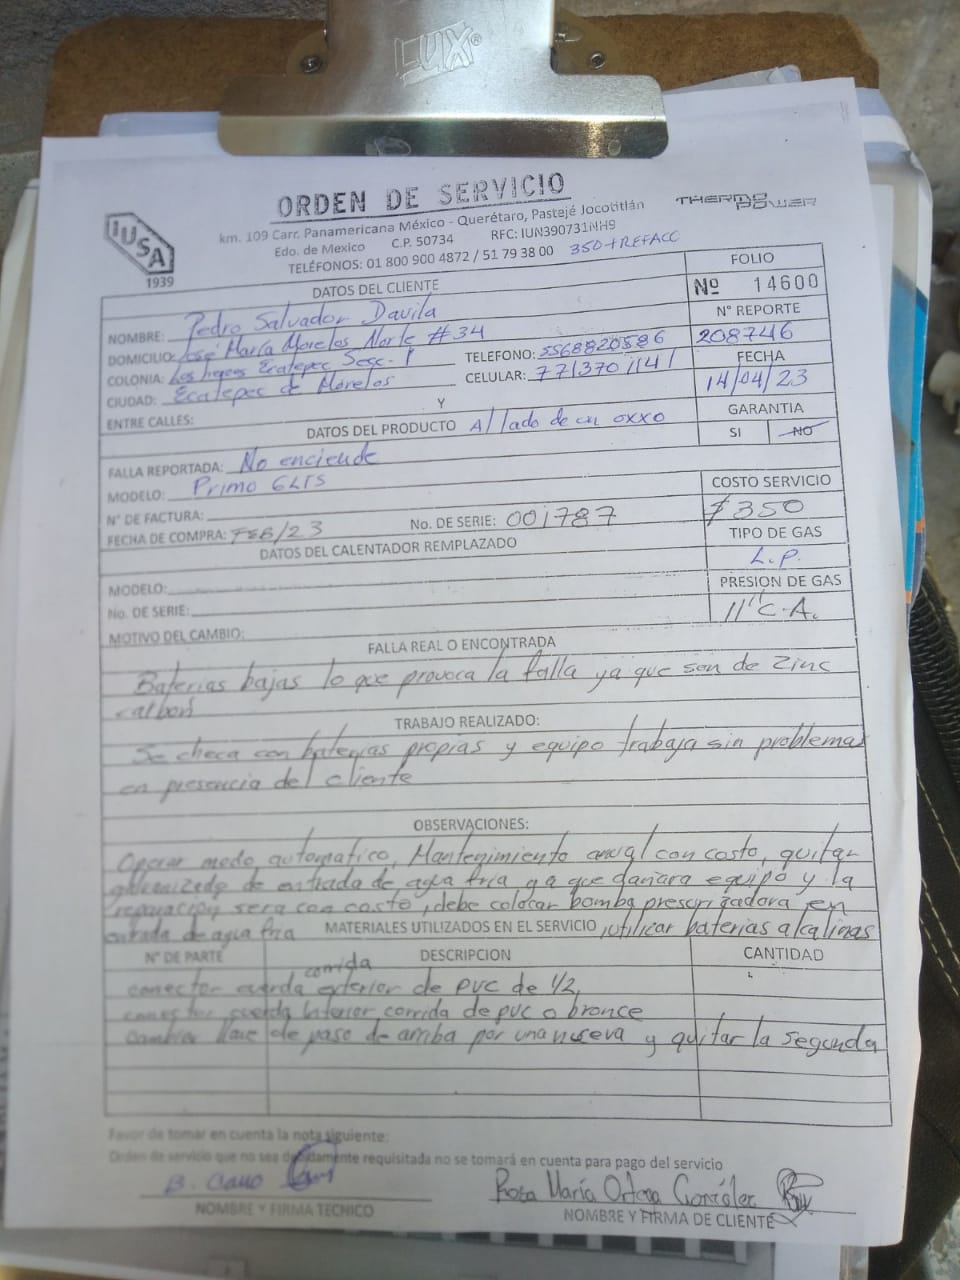 LUX®
ORDEN DE SERVICIO
IUSA
1939
THERMO POWER
km. 109 Carr. Panamericana México - Querétaro, Pastejé Jocotitlán
Edo. de Mexico C.P. 50734 RFC: IUN390731NH9
TELÉFONOS: 01 800 900 4872 / 51 79 38 00 350+REFACC
DATOS DEL CLIENTE
FOLIO
Nº 14600
NOMBRE: Pedro Salvador Davila
N° REPORTE
208746
DOMICILIO: José María Morelos Norte #34
TELEFONO: 5568820586
COLONIA: Ecatepec Secc. 1
CELULAR: 7713701141
FECHA
14/04/23
CIUDAD: Ecatepec de Morelos
ENTRE CALLES: Y
GARANTIA
SI NO
DATOS DEL PRODUCTO Al lado de un oxxo
FALLA REPORTADA: No enciende
MODELO: Primo 6LTS
COSTO SERVICIO
$350
N° DE FACTURA:
FECHA DE COMPRA: FEB/23 No. DE SERIE: 001787
TIPO DE GAS
L.P.
DATOS DEL CALENTADOR REMPLAZADO
PRESION DE GAS
11" C.A.
MODELO:
No. DE SERIE:
MOTIVO DEL CAMBIO:
FALLA REAL O ENCONTRADA
Baterias bajas lo que provoca la falla ya que son de zinc
carbon
TRABAJO REALIZADO:
Se checa con baterias propias y equipo trabaja sin problemas
en presencia del cliente
OBSERVACIONES:
Operar modo automatico, Mantenimiento anual con costo, quitar
galvanizado de entrada de agua fria, ya que dañara equipo y la
reparación sera con costo, debe colocar bomba presurizadora en
entrada de agua fria MATERIALES UTILIZADOS EN EL SERVICIO, utilizar baterias alcalinas
N° DE PARTE DESCRIPCION CANTIDAD
corrida
conector cuerda exterior de PVC de 1/2
conector cuerda interior corrida de pvc o bronce
cambiar llave de paso de arriba por una nueva y quitar la segunda
Favor de tomar en cuenta la nota siguiente:
Orden de servicio que no sea debidamente requisitada no se tomará en cuenta para pago del servicio
B. Cano
Rosa María Ortega González
NOMBRE Y FIRMA TECNICO
NOMBRE Y FIRMA DE CLIENTE